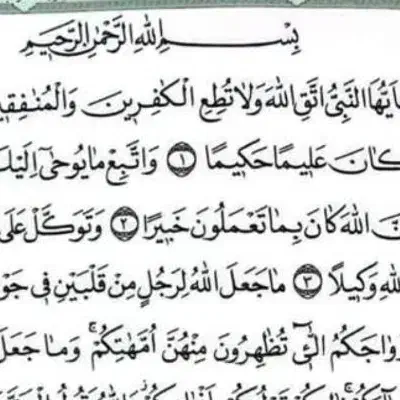 بِسْمِ اللهِ الرَّحْمٰنِ الرَّحِيْمِ
يٰاَيُّهَا النَّبِىُّ اتَّقِ اللهَ وَلَا تُطِعِ الْكٰفِرِيْنَ وَالْمُنٰفِقِ
كَانَ عَلِيْمًا حَكِيْمًا ۝١ وَاتَّبِعْ مَا يُوْحٰٓى اِلَيْكَ
اللهَ كَانَ بِمَا تَعْمَلُوْنَ خَبِيْرًا ۝٢ وَتَوَكَّلْ عَلَى
وَكِيْلًا ۝٣ مَا جَعَلَ اللهُ لِرَجُلٍ مِنْ قَلْبَيْنِ فِىْ جَوْ
وَاجَكُمُ الّٰٓـِٔىْ تُظٰهِرُوْنَ مِنْهُنَّ اُمَّهٰتِكُمْ ۚ وَمَا جَعَلَ